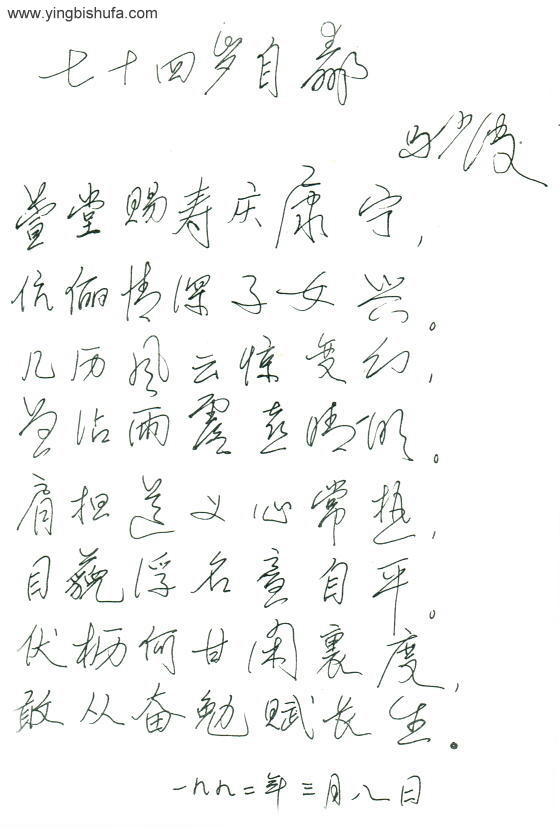 www.yingbishufa.com
七十四岁自
马少波
萱堂赐寿庆康宁,
伉俪情深子女兴。
几历风云惊变幻,
沾雨露喜晴明。
肩担道义心常热,
目藐浮名意自平。
伏枥何甘闲裏度,
敢从奋勉赋长生。
一九九二年三月八日